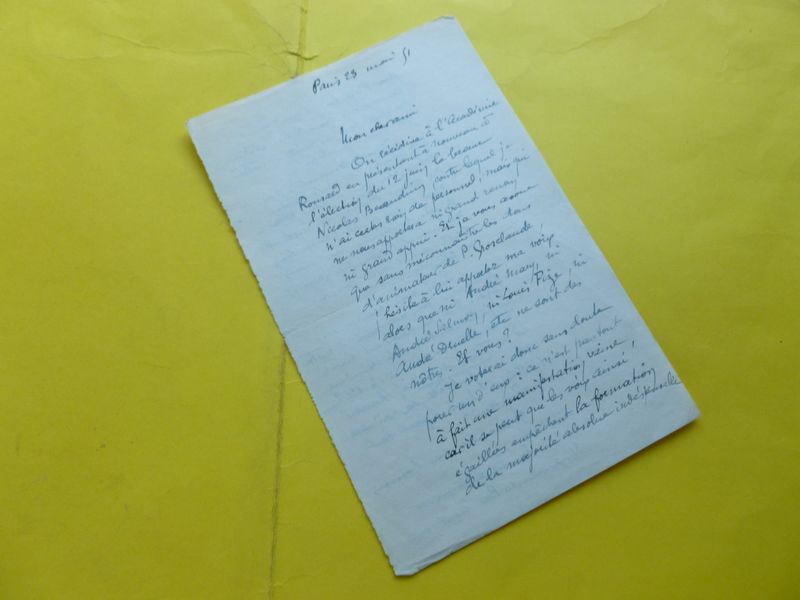 Paris 23 mai 51
Mon cher ami
On récidive à l'Académie
Ronsard en présentant à nouveau à
l'élection du 12 juin le beau
Nicolas Beauduin, contre lequel je
n'ai certes rien de personnel, mais qui
ne nous apportera ni grand renom
ni grand appui. Et je vous avoue
que sans méconnaître les dons
d'animateur de P. Groslaude,
j'hésite à lui apporter ma voix
alors que ni André Mary, ni
André Salmon, ni Louis Pize, ni
André Druelle, etc ne sont des
nôtres. Et vous ?
Je voterai donc sans doute
pour un d'eux : ce n'est pas tout
à fait une manifestation vaine,
car il se peut que les voix ainsi
égaillées empêchent la formation
de la majorité absolue indispensable